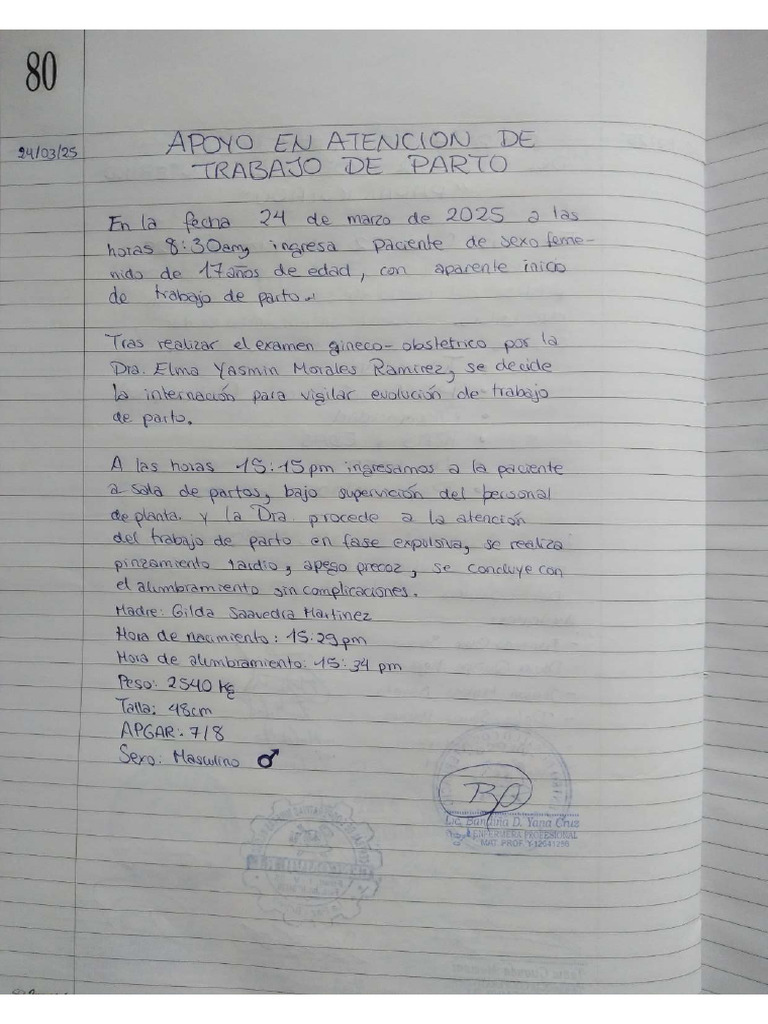 80
24/03/25
APOYO EN ATENCION DE
TRABAJO DE PARTO
En la fecha 24 de marzo de 2025 a las
horas 8:30am, ingresa paciente de sexo feme-
nido de 17 años de edad, con aparente inicio
de trabajo de parto.
Tras realizar el examen gineco-obstetrico por la
Dra. Elma Yasmin Morales Ramirez, se decide
la internación para vigilar evolución de trabajo
de parto.
A las horas 15:15pm ingresamos a la paciente
a sala de partos, bajo supervición del personal
de planta. y la Dra. procede a la atención
del trabajo de parto en fase expulsiva, se realiza
pinzamiento tardio, apego precoz, se concluye con
el alumbramiento sin complicaciones.
Madre: Gilda Saavedra Martinez
Hora de nacimiento: 15:29pm
Hora de alumbramiento: 15:34 pm
Peso: 2540 kg
Talla: 48cm
APGAR: 7/8
Sexo: Masculino ♂
Lic. D. Yana Cruz
ENFERMERA PROFESIONAL
MAT. PROF. Y-12641298